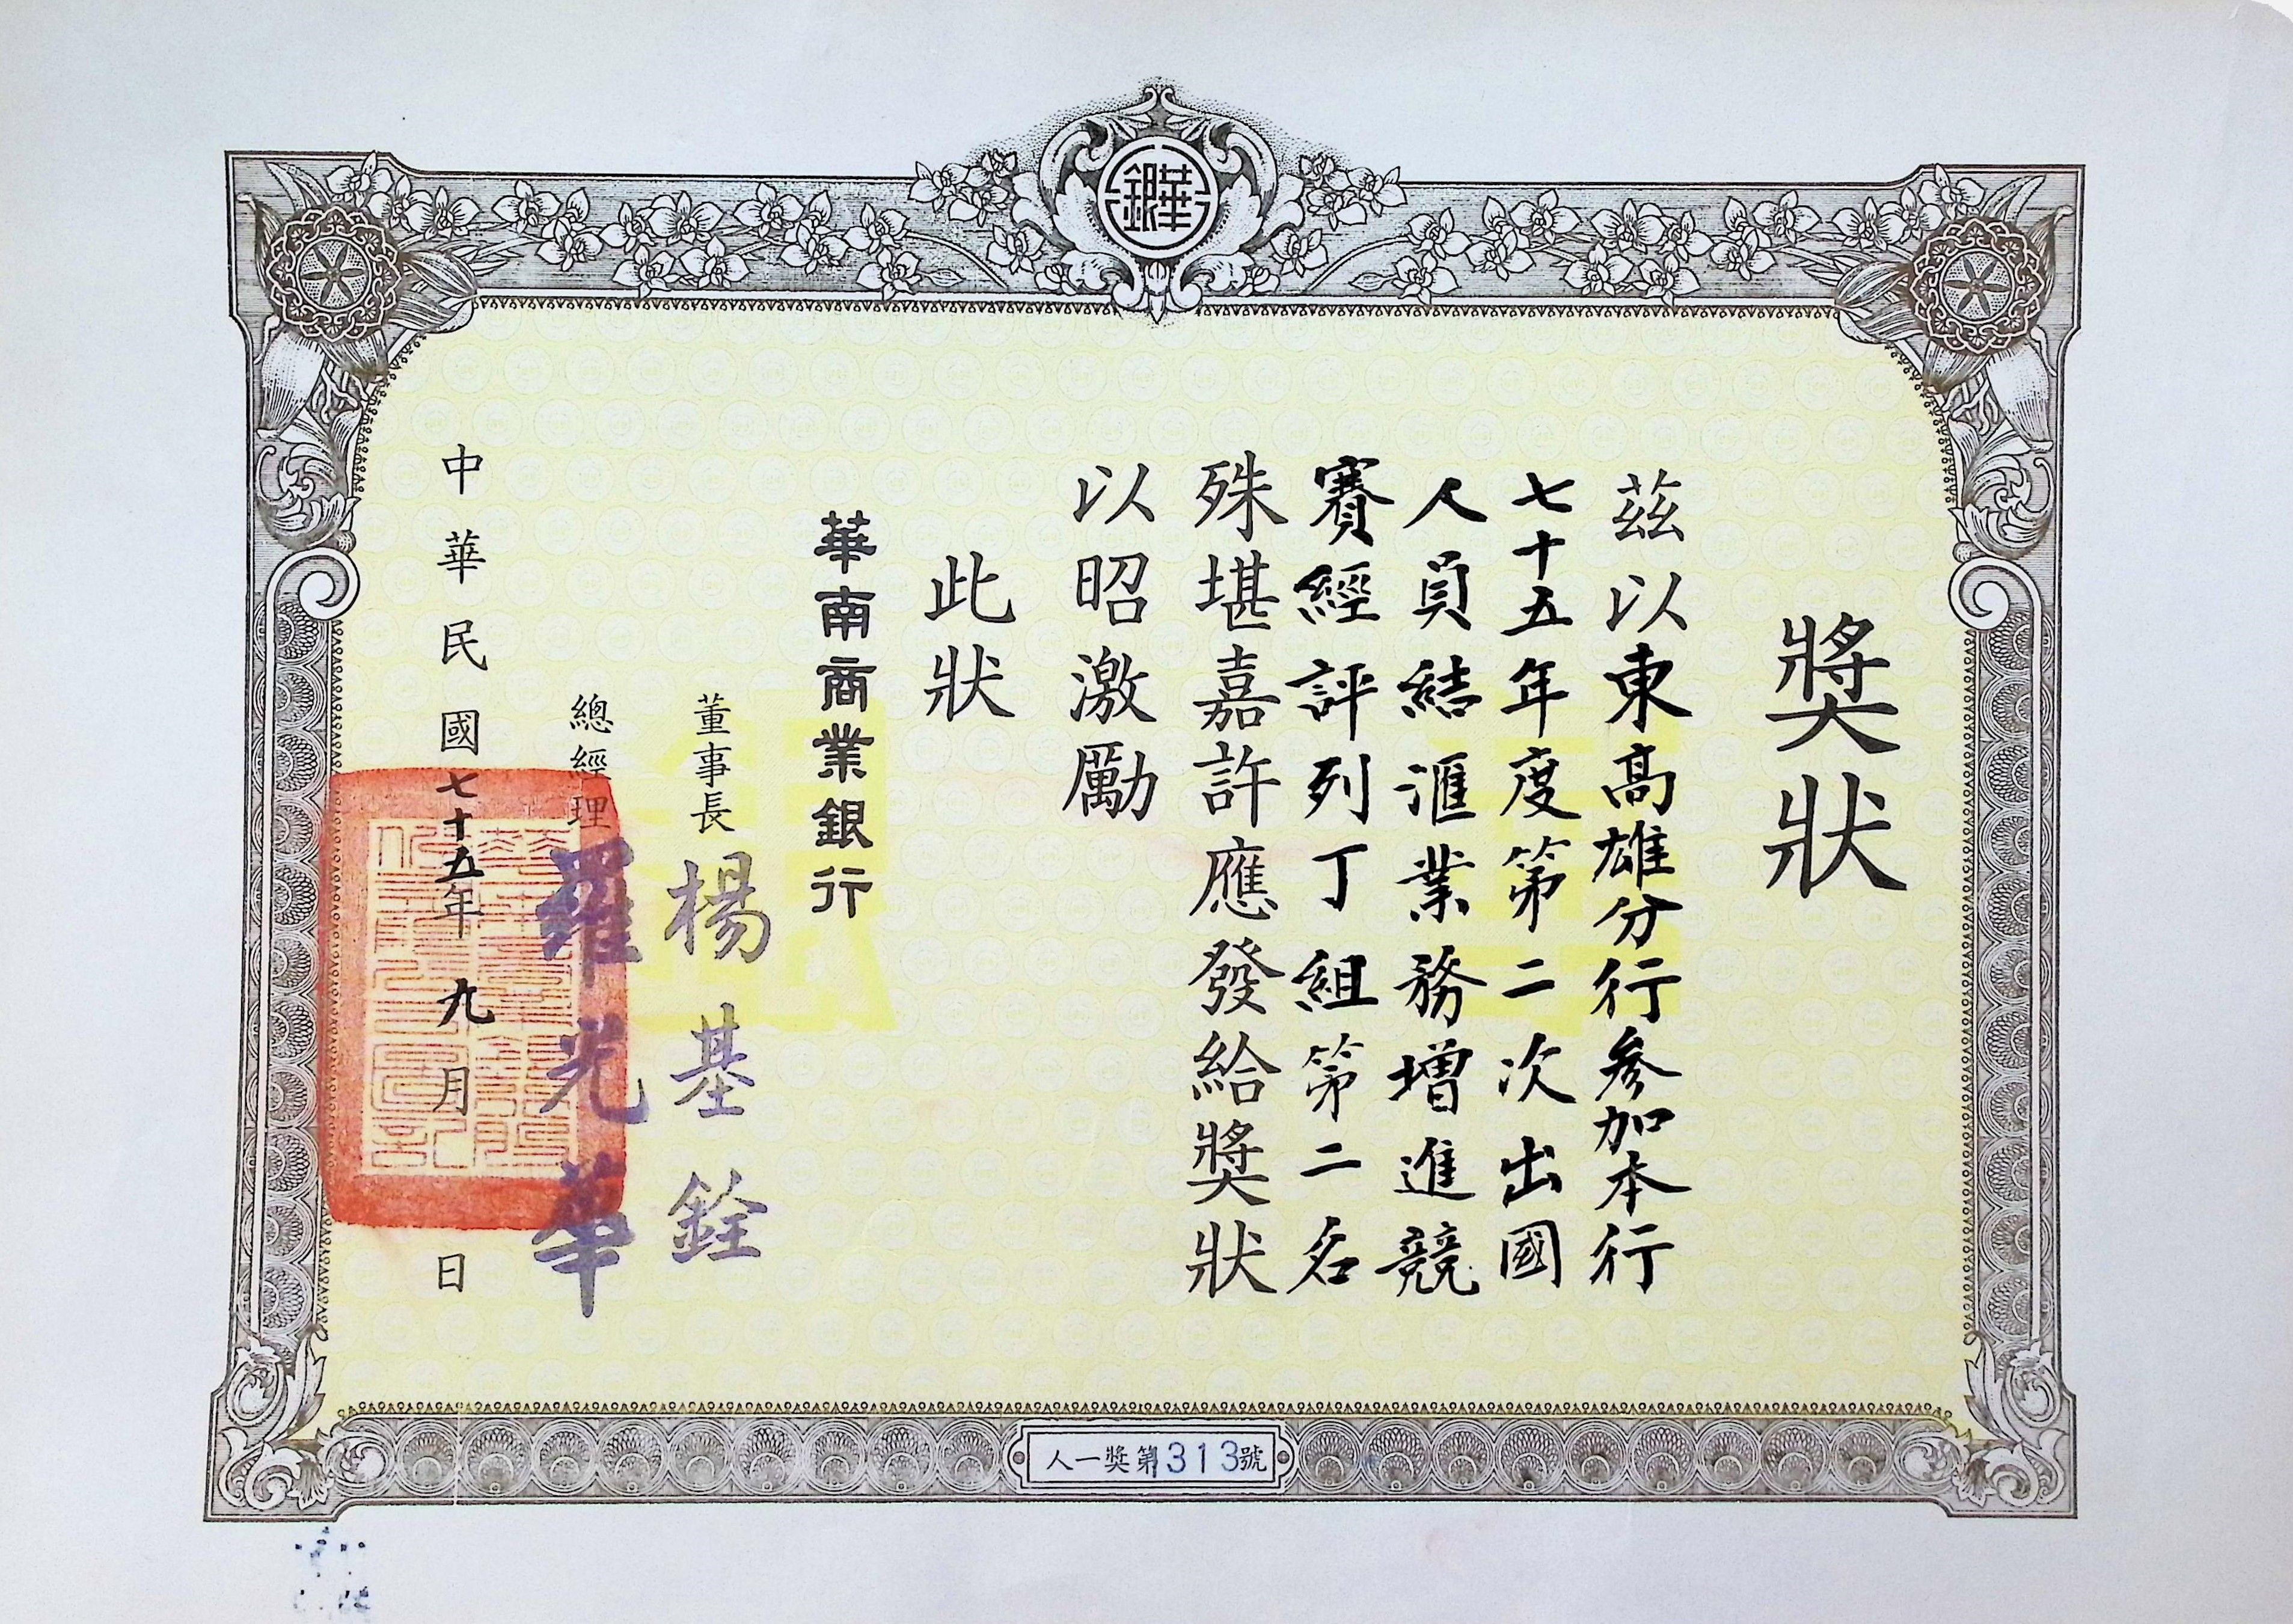 獎狀
茲以東高雄分行參加本行
七十五年度第二次出國
人員結滙業務增進競
賽經評列丁組第二名
殊堪嘉許應發給獎狀
以昭激勵
此狀
華南商業銀行
董事長 楊基銓
總經理 羅光華
中華民國七十五年九月 日
華銀
人一獎第313號